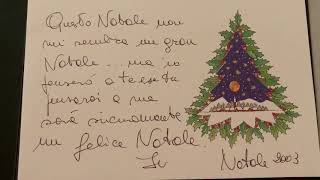 Questo Natale non
mi sembra un gran
Natale... ma io
penserò a te e se tu
penserai a me
sarà sicuramente
un felice Natale.
Natale 2003